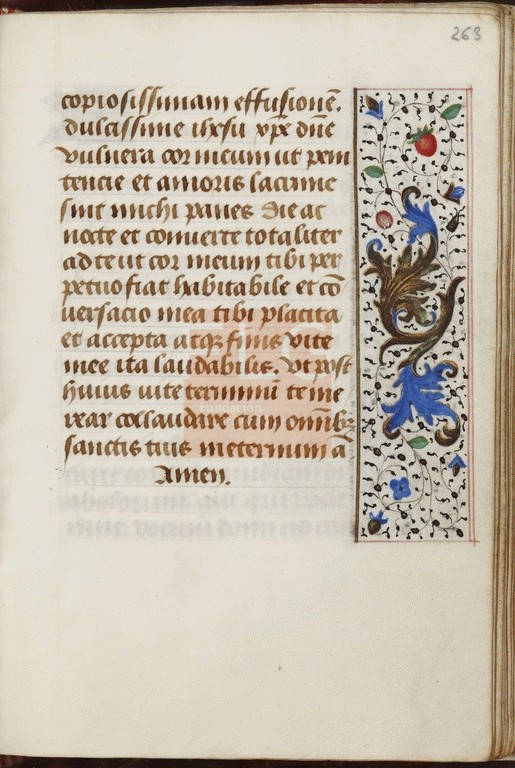 263
copiosissimam effusionē.
dulcissime ihesu xp̄e dn̄e
vulnera cor meum ut peni
tencie et amoris lacrime
sint michi panes die ac
nocte et conuerte totaliter
ad te ut cor meum tibi per
petuo fiat habitabile et cō
uersacio mea tibi placita
et accepta atqꝫ finis vite
mee ita laudabilis. Vt post
huius vite terminū te me
rear collaudare cum omībꝫ
sanctis tuis ineternum ā
Amen.
Fundación